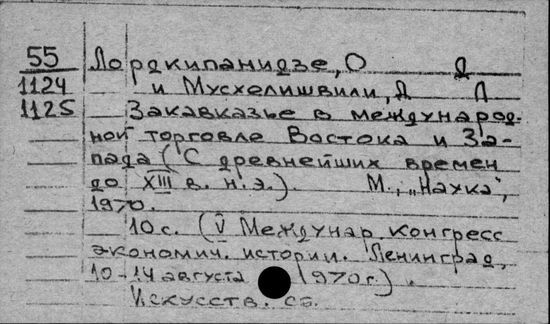 55 Лордкипанидзе, О Д
1124 и Мусхелишвили, Д Л
1125 Закавказье в международ-
ной торговле Востока и За-
пада (С древнейших времен
до XIII в. н.э.). М., „Наука",
1970.
10 с. (V Междунар конгресс
экономич. истории. Ленинград,
10-14 августа 1970г.).
Искусств. сб.